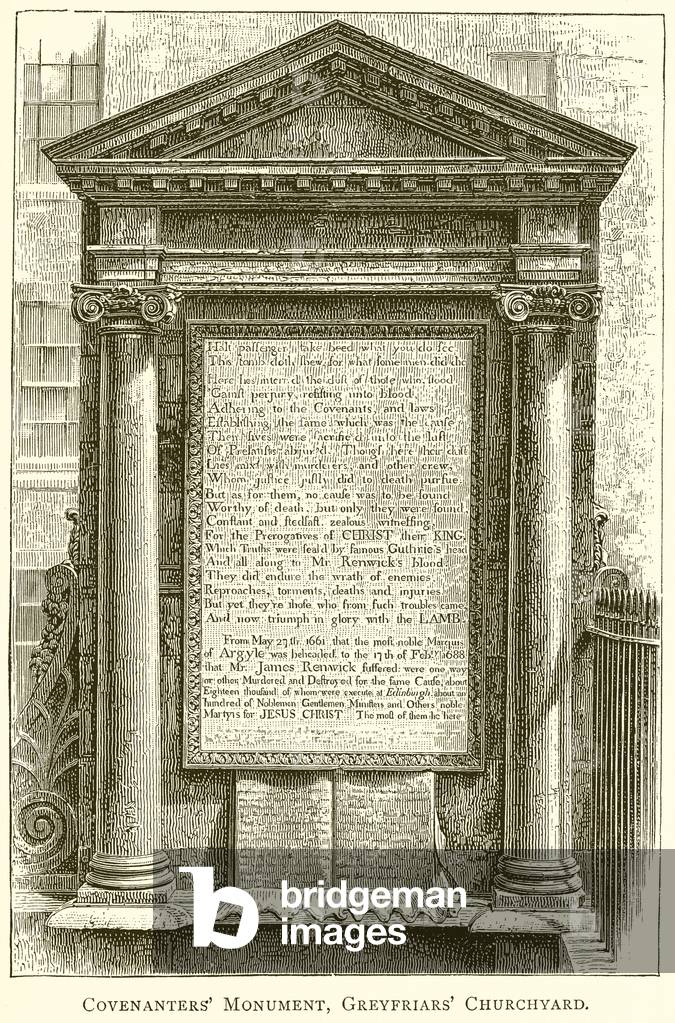 Halt passenger, take heed what you do see,
This tomb doth shew, for what some men did die
Here lies interr'd the dust of those who stood
'Gainst perjury, resisting unto blood,
Adhering to the Covenants, and laws
Establishing the same which was the cause
Their lives were sacrific'd unto the lust
Of Prelatists abjur'd. Though here their dust
Lies mixt with murderers, and other crew,
Whom justice justly did to death pursue
But as for them, no cause was to be found
Worthy of death, but only they were found.
Constant and stedfast, zealous witnessing,
For the Prerogatives of CHRIST their KING,
Which Truths were seal'd by famous Guthrie's head
And all along to Mr. Renwick's blood.
They did endure the wrath of enemies
Reproaches, torments, deaths and injuries
But yet they're those who from such troubles came,
And now triumph in glory with the LAMB.
From May 27th, 1661, that the most noble Marquis
of Argyle was beheaded, to the 17th of Feb.ry 1688
that Mr. James Renwick suffered: were one way
or other Murdered and Destroyed for the same Cause, about
Eighteen thousand, of whom were execute at Edinburgh, about an
hundred of Noblemen, Gentlemen, Ministers and Others noble
Martyrs for JESUS CHRIST The most of them lie here
b bridgeman
images
COVENANTERS' MONUMENT, GREYFRIARS' CHURCHYARD.